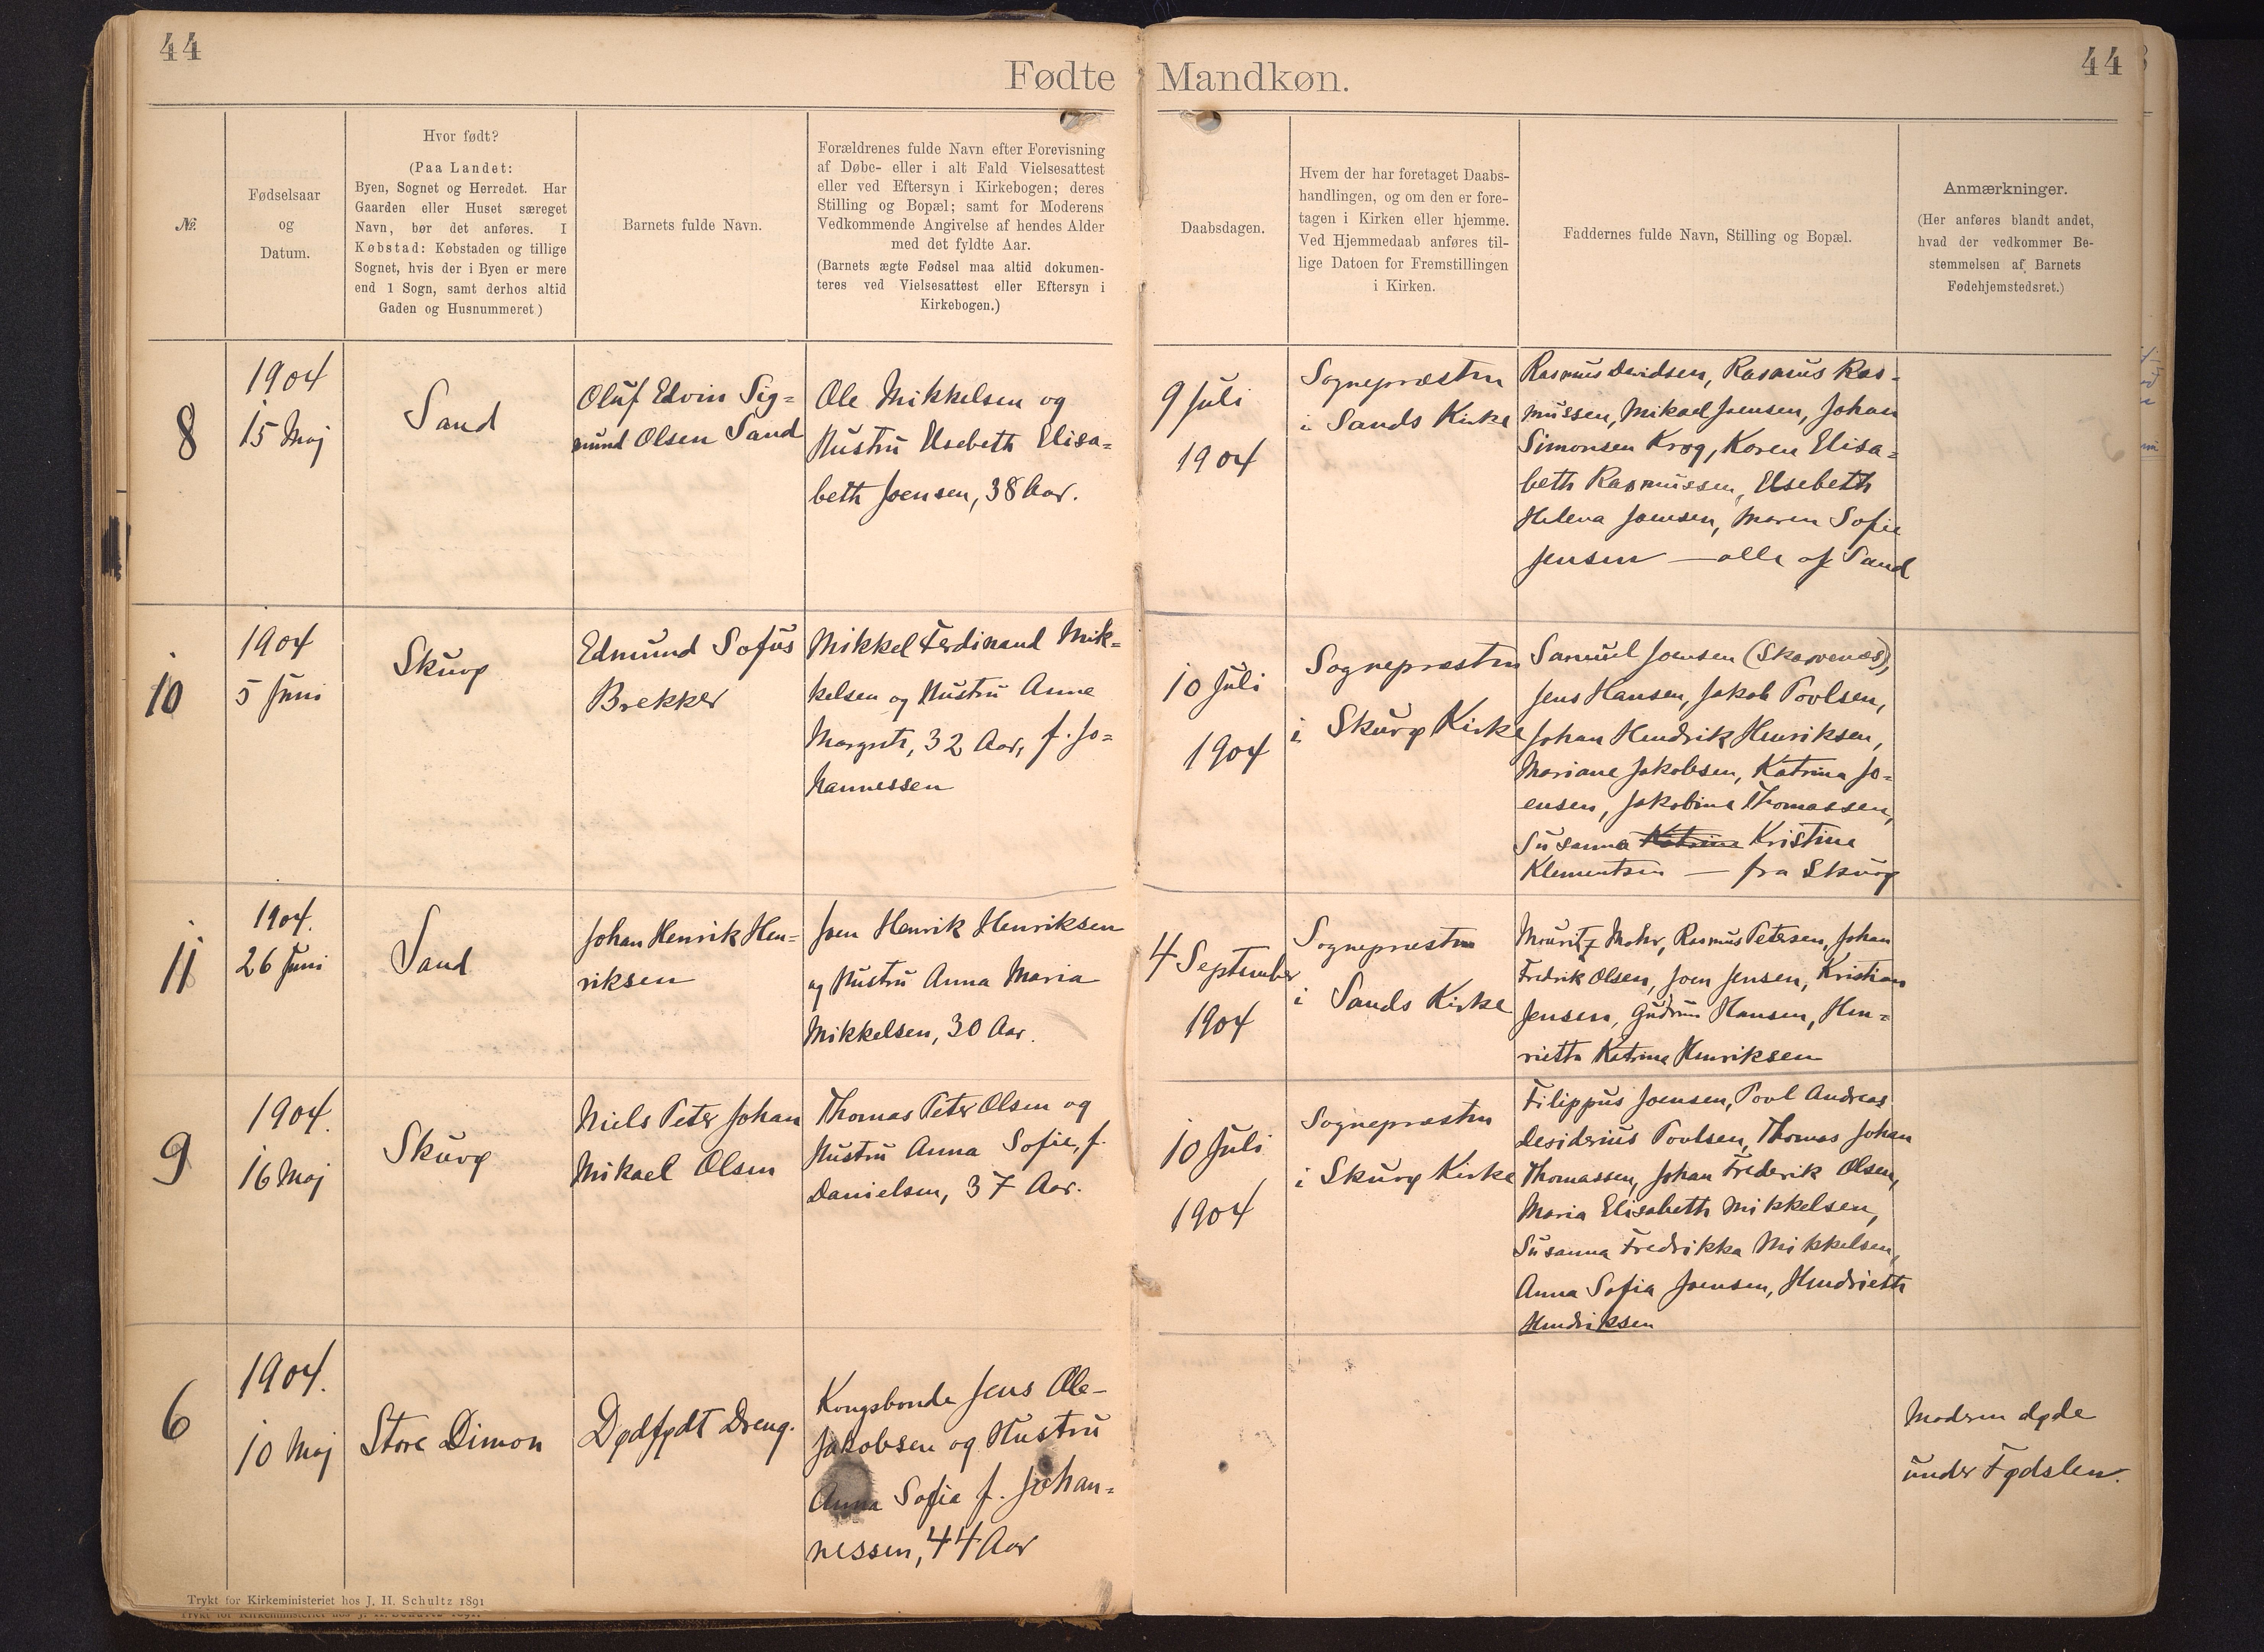 44
Fødte
Mandkøn.
44
№
Fødselsaar
og
Datum.
Hvor født?
(Paa Landet:
Byen, Sognet og Herredet. Har
Gaarden eller Huset særeget
Navn, bør det anføres. I
Købstad: Købstaden og tillige
Sognet, hvis der i Byen er mere
end 1 Sogn, samt derhos altid
Gaden og Husnummeret)
Barnets fulde Navn.
Forældrenes fulde Navn efter Forevisning
af Døbe- eller i alt Fald Vielsesattest
eller ved Eftersyn i Kirkebogen; deres
Stilling og Bopæl; samt for Moderens
Vedkommende Angivelse af hendes Alder
med det fyldte Aar.
(Barnets ægte Fødsel maa altid dokumen-
teres ved Vielsesattest eller Eftersyn i
Kirkebogen.)
Daabsdagen.
Hvem der har foretaget Daabs-
handlingen, og om den er fore-
tagen i Kirken eller hjemme.
Ved Hjemmedaab anføres til-
lige Datoen for Fremstillingen
i Kirken.
Faddernes fulde Navn, Stilling og Bopæl.
Anmærkninger.
(Her anføres blandt andet,
hvad der vedkommer Be-
stemmelsen af Barnets
Fødehjemstedsret.)
8
1904
15 Maj
Sand
Oluf Edvin Sig=
mund Olsen Sand
Ole Mikkelsen og
Hustru Elsebeth Elisa=
beth Joensen, 38 Aar.
9 Juli
1904
Sognepræsten
i Sands Kirke
Rasmus Davidsen, Rasmus Ras-
mussen, Mikael Joensen, Johan
Simonsen Krog, Karen Elisa=
beth Rasmussen, Elsebeth
Helena Joensen, Maren Sofie
Jensen — alle af Sand
10
1904
5 Juni
Skuvø
Edmund Sofus
Brekker
Mikkel Ferdinand Mik=
kelsen og Hustru Anne
Margrete, 32 Aar, f. Jo=
hannessen
10 Juli
1904
Sognepræsten
i Skuvø Kirke
Samuel Joensen (Skarvenæs),
Jens Hansen, Jakob Poulsen,
Johan Hendrik Henriksen,
Mariane Jakobsen, Katrina Jo=
ensen, Jakobina Thomassen,
Susanna Katrine Kristine
Klementsen — fra Skuvø
11
1904.
26 Juni
Sand
Johan Henrik Hen=
riksen
Joen Henrik Henriksen
og Hustru Anna Maria
Mikkelsen, 30 Aar.
4 September
1904
Sognepræsten
i Sands Kirke
Mouritz Mohr, Rasmus Petersen, Johan
Fredrik Olsen, Joen Jensen, Kristian
Jensen, Gudrun Hansen, Hen=
riette Katrina Henriksen
9
1904.
16 Maj
Skuvø
Niels Peter Johan
Mikael Olsen
Thomas Peter Olsen og
Hustru Anna Sofie, f.
Danielsen, 37 Aar.
10 Juli
1904
Sognepræsten
i Skuvø Kirke
Filippus Joensen, Poul Andreas
Desiderius Poulsen, Thomas Johan
Thomassen, Johan Frederik Olsen,
Maria Elisabeth Mikkelsen,
Susanna Fredrikka Mikkelsen,
Anna Sofia Joensen, Hendriette
Hendriksen
6
1904.
10 Maj
Store Dimon
Dødfødt Dreng.
Kongsbonde Jens Ole
Jakobsen og Hustru
Anna Sofia f. Johan=
nessen, 44 Aar
Moderen døde
under Fødslen.
Trykt for Kirkeministeriet hos J. H. Schultz 1891